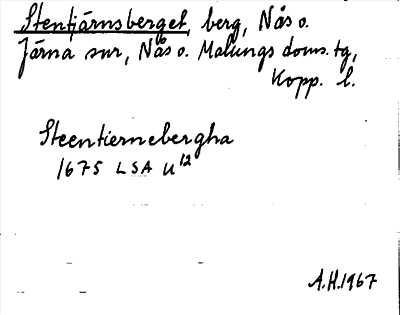 Stentjärnsberget, berg, Nås o.
Järna snr, Nås o. Malungs doms. tg,
Kopp. l.
Steentiernebergha
1675 LSA U 12
A.H. 1967